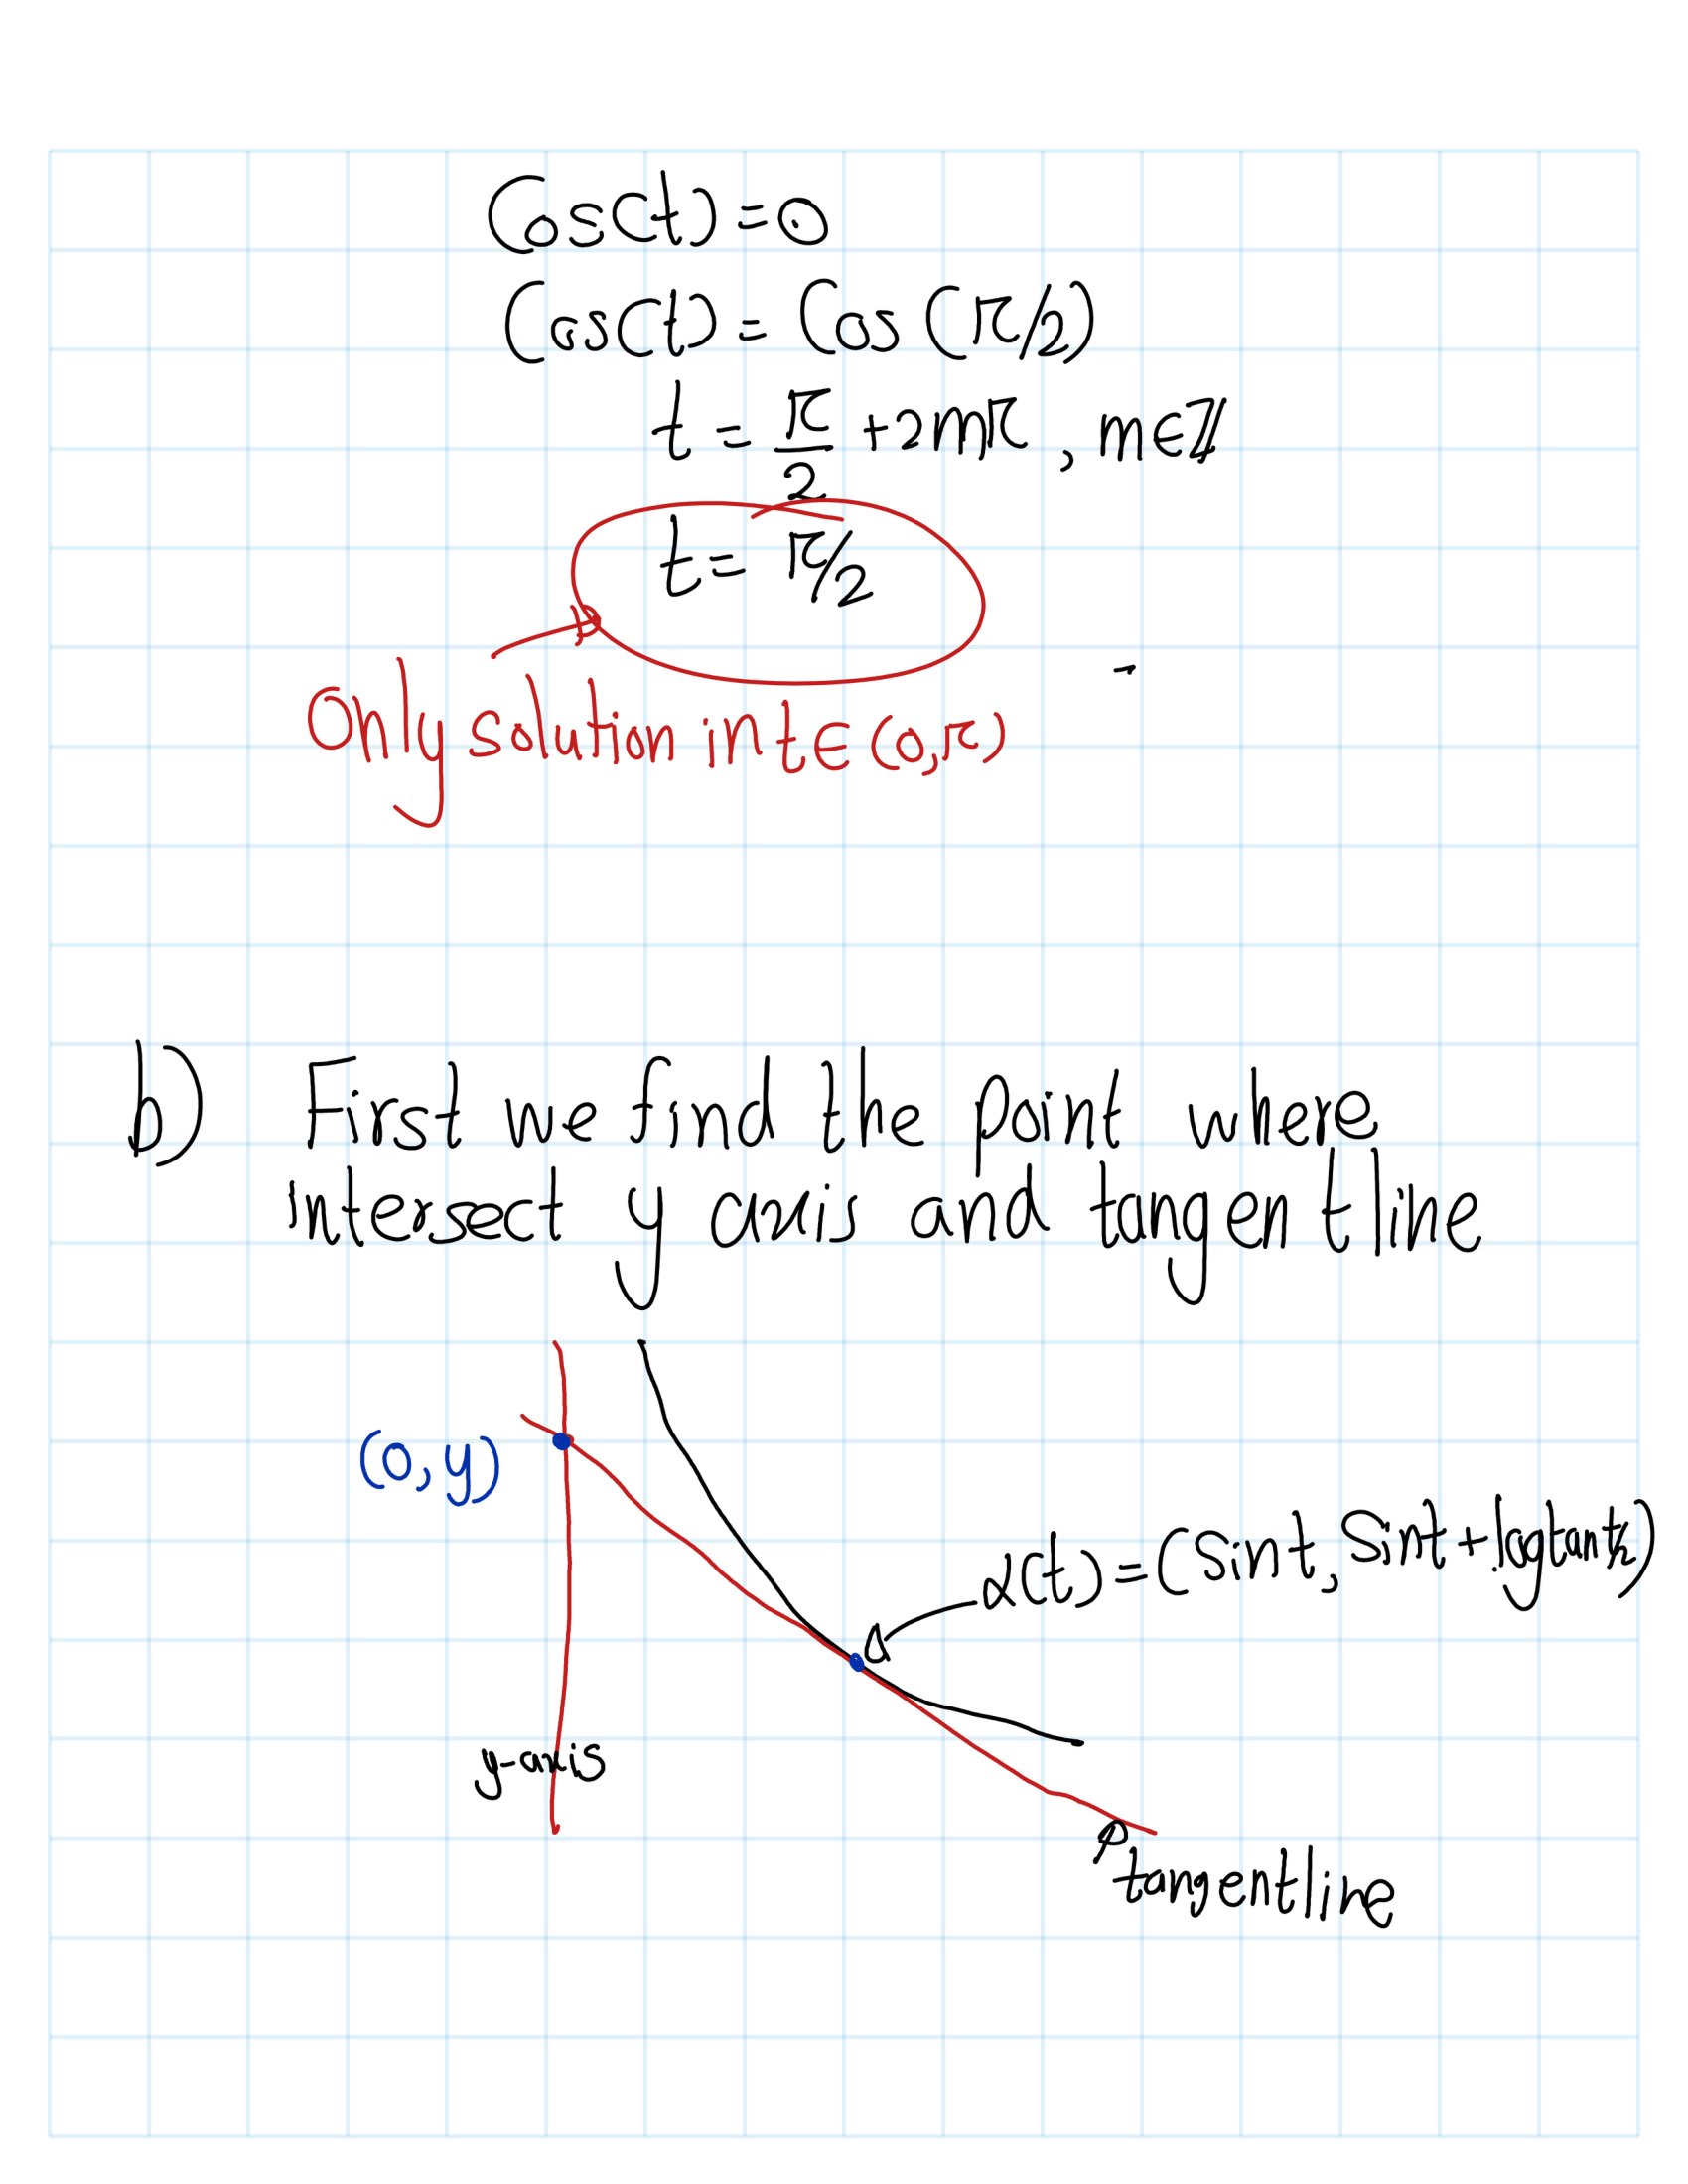 Cos(t)=0
Cos(t)= Cos(π/2)
t = π/2 +2mπ , m∈ℤ
t= π/2
Only solution in t∈(0,π)
-
b) First we find the point where
intersect y axis and tangent line
(0,y)
α(t)=(sint, sint+logtant/2)
y-axis
tangent line